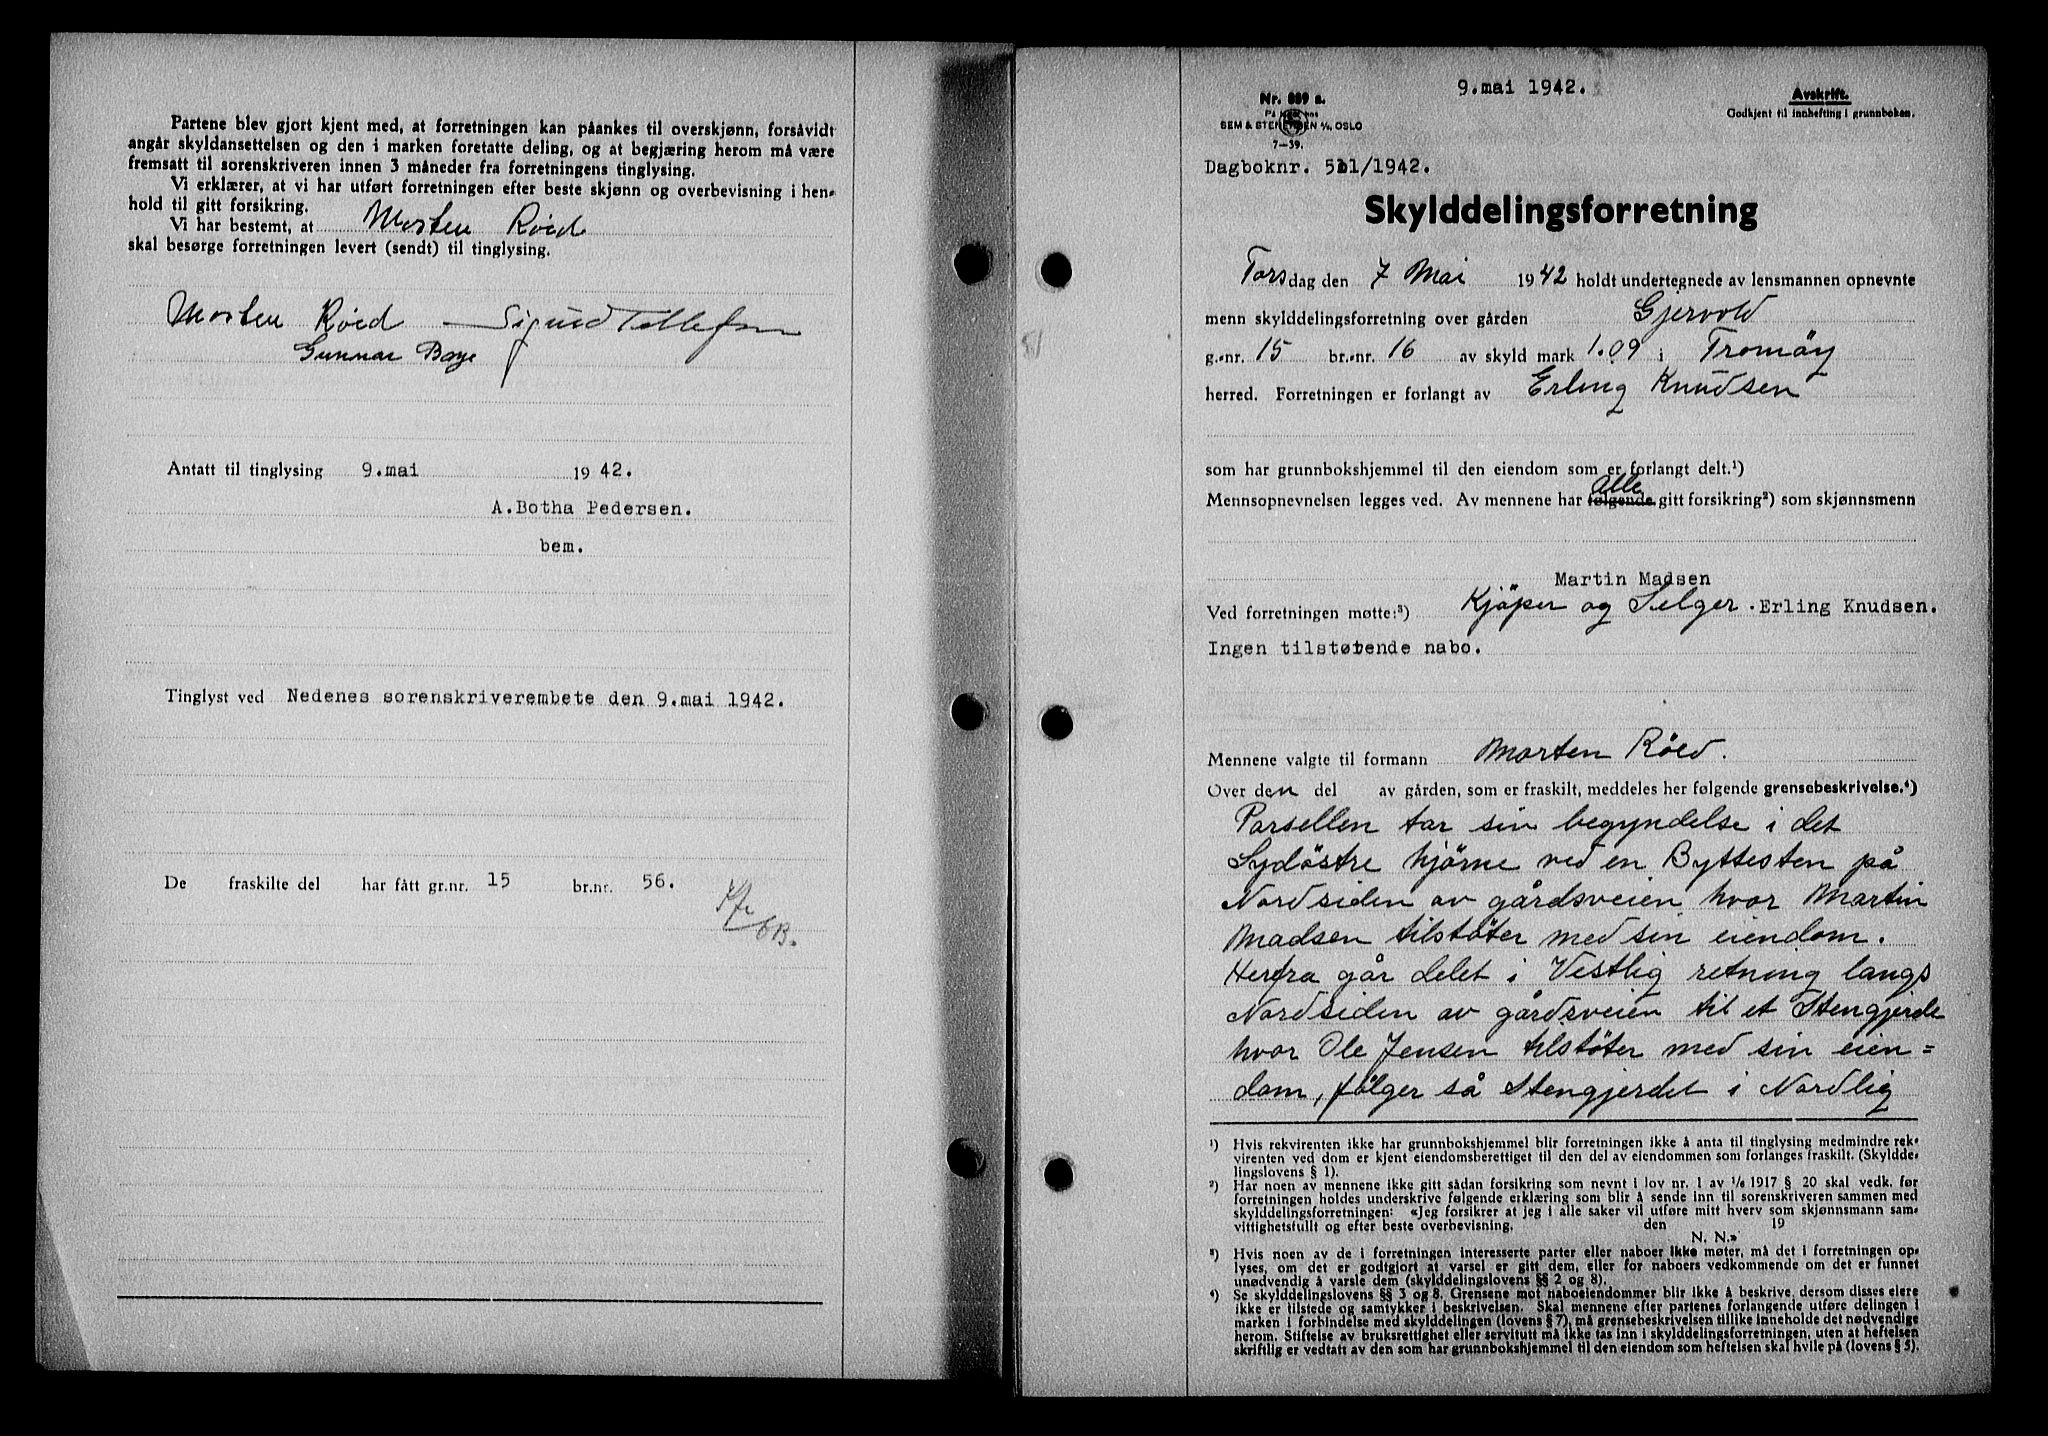 Partene blev gjort kjent med, at forretningen kan påankes til overskjønn, forsåvidt
angår skyldansettelsen og den i marken foretatte deling, og at begjæring herom må være
fremsatt til sorenskriveren innen 3 måneder fra forretningens tinglysing.
Vi erklærer, at vi har utført forretningen efter beste skjønn og overbevisning i hen-
hold til gitt forsikring.
Vi har bestemt, at Morten Røed
skal besørge forretningen levert (sendt) til tinglysing.
Morten Røed Sigurd Tellefsen
Gunnar Boye
Antatt til tinglysing 9.mai 1942.
A.Botha Pedersen.
bem.
Tinglyst ved Nedenes sorenskriverembete den 9.mai 1942.
De fraskilte del har fått gr.nr. 15 br.nr. 56.
9.mai 1942.
Nr. 889 a.
SEM & STENERSEN A/S, OSLO
7-39.
Avskrift.
Godkjent til innhefting i grunnboken.
Dagboknr. 511/1942.
Skylddelingsforretning
Torsdag den 7 Mai 1942 holdt undertegnede av lensmannen opnevnte
menn skylddelingsforretning over gården Gjervold
g.-nr. 15 br.-nr. 16 av skyld mark 1.09 i Tromöy
herred. Forretningen er forlangt av Erling Knudsen
som har grunnbokshjemmel til den eiendom som er forlangt delt.¹)
Alle
Mennsopnevnelsen legges ved. Av mennene har følgende gitt forsikring²) som skjønnsmenn
Martin Madsen
Ved forretningen møtte:³) Kjöper og Selger. Erling Knudsen.
Ingen tilstøtende nabo.
Mennene valgte til formann Morten Röed.
Over den del av gården, som er fraskilt, meddeles her følgende grensebeskrivelse.⁴)
Parsellen tar sin begyndelse i det
Sydöstre hjörne ved en Byttesten på
Nordsiden av gårdsveien hvor Martin
Madsen tilstöter med sin eiendom.
Herfra går delet i Vestlig retning langs
Nordsiden av gårdsveien til et Stengjerde
hvor Ole Jensen tilstöter med sin eien=
dom, fölger så Stengjerdet i Nordlig
¹) Hvis rekvirenten ikke har grunnbokshjemmel blir forretningen ikke å anta til tinglysing medmindre rek-
virenten ved dom er kjent eiendomsberettiget til den del av eiendommen som forlanges fraskilt. (Skyldde-
lingslovens § 1).
²) Har noen av mennene ikke gitt sådan forsikring som nevnt i lov nr. 1 av 1/6 1917 § 20 skal vedk. før
forretningen holdes underskrive følgende erklæring som blir å sende inn til sorenskriveren sammen med
skylddelingsforretningen: «Jeg forsikrer at jeg i alle saker vil utføre mitt hverv som skjønnsmann sam-
vittighetsfullt og efter beste overbevisning. den 19
N. N.»
³) Hvis noen av de i forretningen interesserte parter eller naboer ikke møter, må det i forretningen op-
lyses, om det er godtgjort at varsel er gitt dem, eller for naboers vedkommende om det er funnet
unødvendig å varsle dem (skylddelingslovens §§ 2 og 8).
⁴) Se skylddelingslovens §§ 3 og 8. Grensene mot naboeiendommer blir ikke å beskrive, dersom disses eiere
ikke er tilstede og samtykker i beskrivelsen. Skal mennene efter partenes forlangende utføre delingen i
marken i forbindelse med skylddelingen (lovens § 7), må grensebeskrivelsen tillike inneholde det nødvendige
herom. Stiftelse av bruksrettighet eller servitutt må ikke tas inn i skylddelingsforretningen, uten at heftelsen
skriftlig er vedtatt av den som har grunnbokshjemmel til den eiendom som heftelsen skal hvile på (lovens § 5).